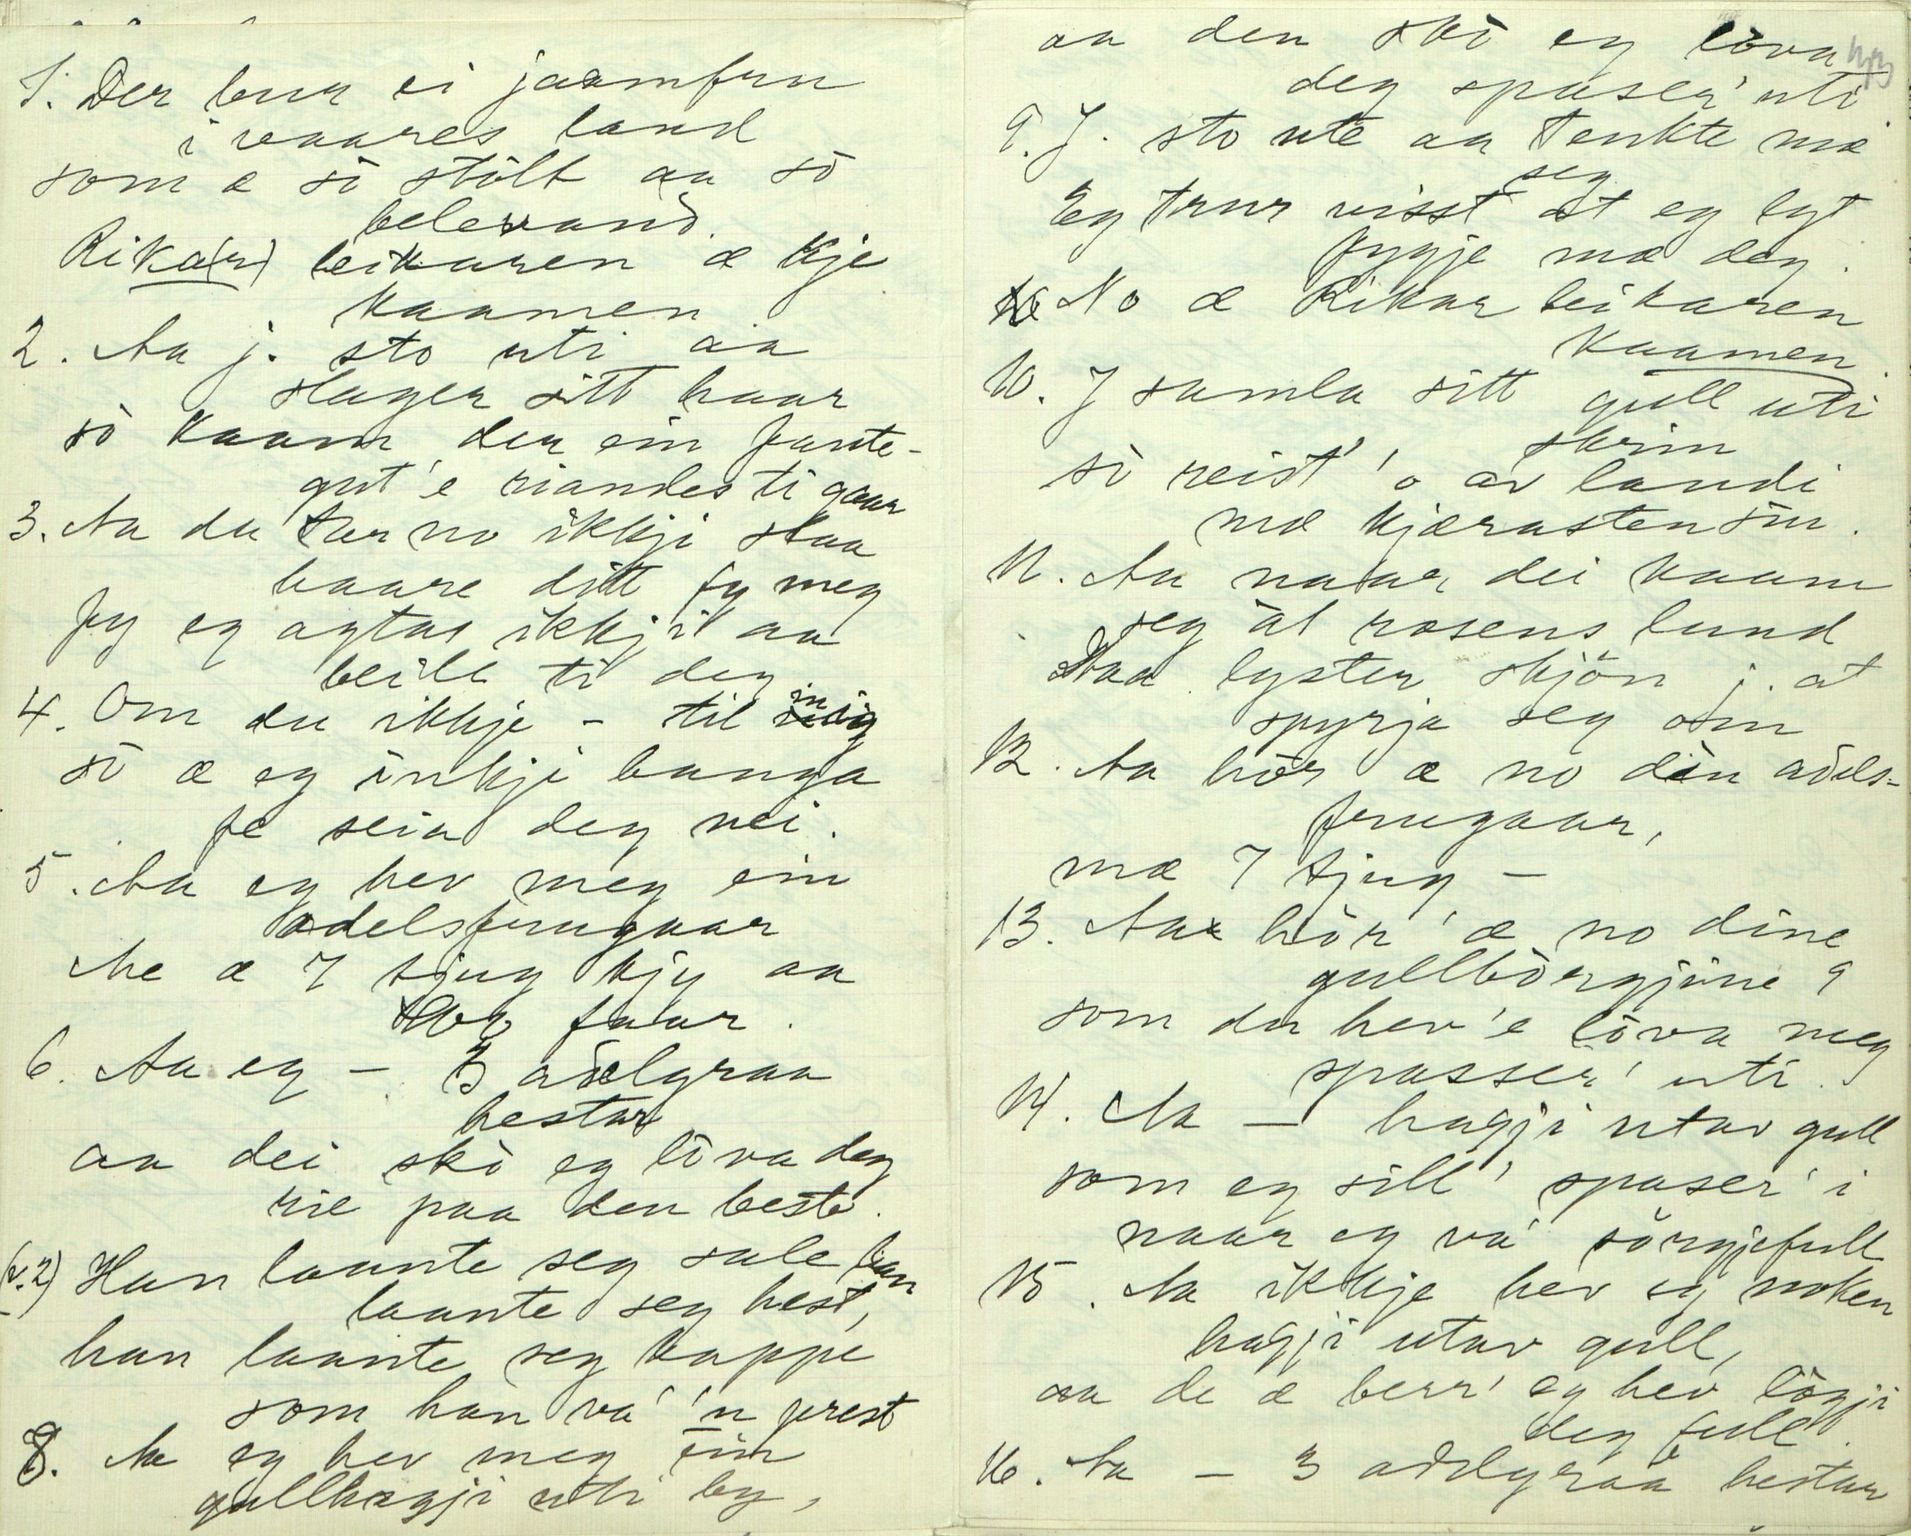 1. Der bur ei jaamfru
i vaares land
som æ sò stòlt aa sò
belevand.
Rika(r) leikaren æ kje
kaamen
2. Aa j. sto uti aa
slager sitt haar
sò kaam der ein fante-
gut'e riandes ti gaar
3. Aa du tar no ikkji slaa
haare ditt fy meg
fy eg agtar ikkji aa
beile ti deg
4. Om du ikkje – til mig
sò æ eg inkji banga
fe seia deg nei.
5. Aa eg hev meg ein
adelsfrugaar
Me æ 7 tjug kjy aa
faar.
6. Aa eg – 3 adelgraa
hestar
aa dei skò eg lòva deg
rie paa den beste.
(v.2) Han laante seg sale han
laante seg hest,
han laante seg kappe
som han va' 'n prest
8. Aa eg hev meg ein
gullhagji uti by,
aa den skò eg lòva
deg spaser' uti
9. J. sto ute aa tenkte mæ
seg
Eg trur visst at eg lyt
fygje mæ deg.
No æ Rikar leikaren
kaamen
10. J samla sitt gull uti
skrin
sò reist' 'o av landi
mæ kjærasten sin.
11. Aa naar dei kaam
seg åt rosens lund
Daa lyster skjön j. at
spyrja seg om
12. Aa hòr æ no din adels-
frugaar,
mæ 7 tjug –
13. Aa hòr' æ no dine
gullbòrgjine
som du hev'e lòva meg
spasser' uti.
14. Aa – hagji utav gull
som eg sill' spaser' i
naar eg va' sòrgjefull
15. Aa ikkje hev eg noken
hagji utav gull,
aa de æ berr' eg hev lògji
deg full.
16. Aa – 3 adelgraa hestar